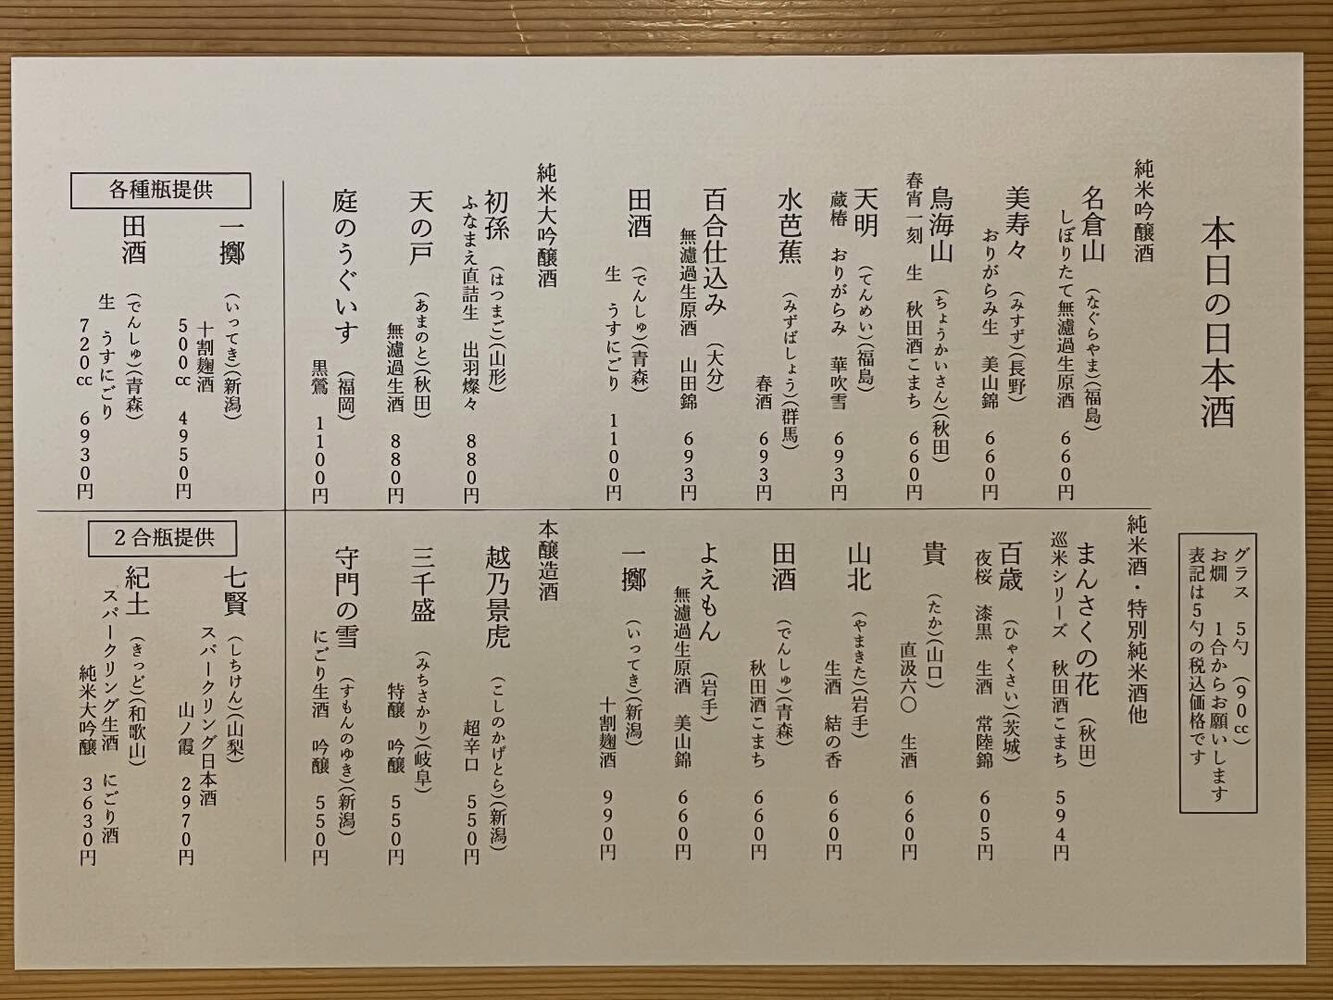 本日の日本酒
グラス 5勺 (90cc)
お燗 1合からお願いします
表記は5勺の税込価格です
純米吟醸酒
名倉山 (なぐらやま)(福島)
しぼりたて無濾過生原酒 660円
美寿々 (みすず)(長野)
おりがらみ生 美山錦 660円
鳥海山 (ちょうかいさん)(秋田)
春宵一刻 生 秋田酒こまち 660円
天明 (てんめい)(福島)
蔵椿 おりがらみ 華吹雪 693円
水芭蕉 (みずばしょう)(群馬)
春酒 693円
百合仕込み (大分)
無濾過生原酒 山田錦 693円
田酒 (でんしゅ)(青森)
生 うすにごり 1100円
純米大吟醸酒
初孫 (はつまご)(山形)
ふなまえ直詰生 出羽燦々 880円
天の戸 (あまのと)(秋田)
無濾過生酒 880円
庭のうぐいす (福岡)
黒鶯 1100円
純米酒・特別純米酒他
まんさくの花 (秋田)
巡米シリーズ 秋田酒こまち 594円
百歳 (ひゃくさい)(茨城)
夜桜 漆黒 生酒 常陸錦 605円
貴 (たか)(山口)
直汲六〇 生酒 660円
山北 (やまきた)(岩手)
生酒 結の香 660円
田酒 (でんしゅ)(青森)
秋田酒こまち 660円
よえもん (岩手)
無濾過生原酒 美山錦 660円
一擲 (いってき)(新潟)
十割麹酒 990円
本醸造酒
越乃景虎 (こしのかげとら)(新潟)
超辛口 550円
三千盛 (みちさかり)(岐阜)
特醸 吟醸 550円
守門の雪 (すもんのゆき)(新潟)
にごり生酒 吟醸 550円
各種瓶提供
一擲 (いってき)(新潟)
十割麹酒
500cc 4950円
田酒 (でんしゅ)(青森)
生 うすにごり
720cc 6930円
2合瓶提供
七賢 (しちけん)(山梨)
スパークリング日本酒
山ノ霞 2970円
紀土 (きっど)(和歌山)
スパークリング生酒 にごり酒
純米大吟醸 3630円